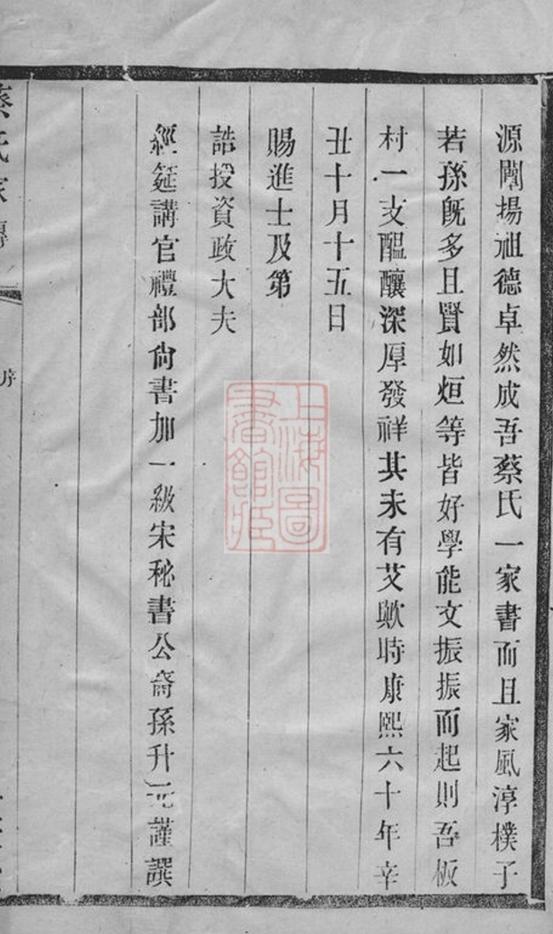 源闡揚祖德卓然成吾蔡氏一家書而且家風淳樸子
若孫旣多且賢如烜等皆好學能文振振而起則吾板
村一支醞釀深厚發祥其未有艾歟時康熙六十年辛
丑十月十五日
賜進士及第
誥授資政大夫
經筵講官禮部尙書加一級宋秘書公裔孫升元謹譔
蔡氏家傳
序
上海圖書館藏